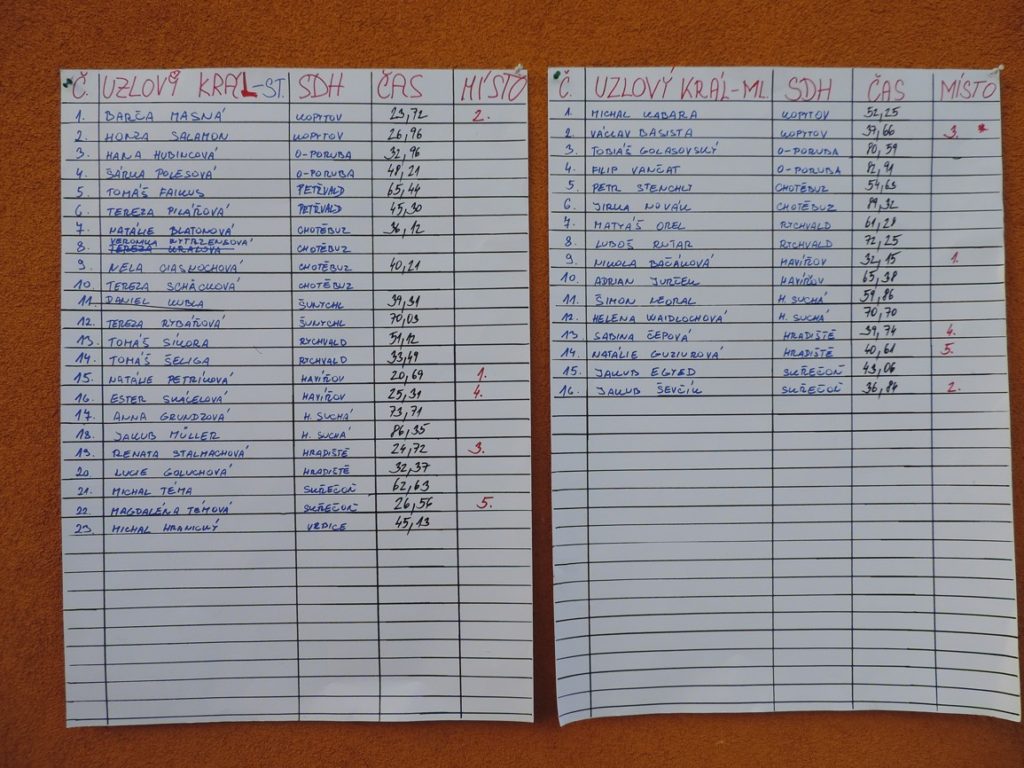 Č. UZLOVÝ KRÁL-ST. SDH ČAS MÍSTO
1. BARČA MASNÁ KOPYTOV 23,72 2.
2. HONZA SALAMON KOPYTOV 26,96
3. HANA HUDINCOVÁ O-PORUBA 32,96
4. ŠÁRKA POLESOVÁ O-PORUBA 48,21
5. TOMÁŠ FAIKUS PETŘVALD 65,44
6. TEREZA PILÁŘOVÁ PETŘVALD 45,30
7. NATÁLIE BLATONOVÁ CHOTĚBUZ 36,12
VERONIKA RYTRZENSOVÁ
8. TEREZA KRÁLOVÁ CHOTĚBUZ
9. NELA CIASNOCHOVÁ CHOTĚBUZ 40,21
10. TEREZA SCHÄCKOVÁ CHOTĚBUZ
11. DANIEL KUBLA ŠUNYCHL 39,31
12. TEREZA RYBÁŘOVÁ ŠUNYCHL 70,03
13. TOMÁŠ SIKORA RYCHVALD 51,12
14. TOMÁŠ ŠELIGA RYCHVALD 33,49
15. NATÁLIE PETRÍKOVÁ HAVÍŘOV 20,69 1.
16. ESTER SKÁCELOVÁ HAVÍŘOV 25,31 4.
17. ANNA GRUNDZOVÁ H. SUCHÁ 73,71
18. JAKUB MÜLLER H. SUCHÁ 86,35
19. RENATA STALMACHOVÁ HRADIŠTĚ 24,72 3.
20. LUCIE GOLUCHOVÁ HRADIŠTĚ 32,37
21. MICHAL TÉMA SKŘEČOŇ 62,63
22. MAGDALÉNA TÉMOVÁ SKŘEČOŇ 26,56 5.
23. MICHAL HRANICKÝ VRDICE 45,13
Č. UZLOVÝ KRÁL-ML. SDH ČAS MÍSTO
1. MICHAL KABARA KOPYTOV 52,25
2. VÁCLAV BASISTA KOPYTOV 37,66 3. *
3. TOBIÁŠ GOLASOVSKÝ O-PORUBA 80,59
4. FILIP VANČAT O-PORUBA 82,91
5. PETR STENCHLY CHOTĚBUZ 54,63
6. JIRKA NOVÁK CHOTĚBUZ 89,32
7. MATYÁŠ OREL RYCHVALD 61,28
8. LUBOŠ RUTAR RYCHVALD 72,25
9. NIKOLA BAČÁKOVÁ HAVÍŘOV 32,15 1.
10. ADRIAN JURČEK HAVÍŘOV 65,38
11. ŠIMON KEDRAL H. SUCHÁ 59,86
12. HELENA WAIDLOCHOVÁ H. SUCHÁ 70,70
13. SABINA ČEPOVÁ HRADIŠTĚ 39,74 4.
14. NATÁLIE GUZIUROVÁ HRADIŠTĚ 40,61 5.
15. JAKUB EGYED SKŘEČOŇ 43,06
16. JAKUB ŠEVČÍK SKŘEČOŇ 36,84 2.